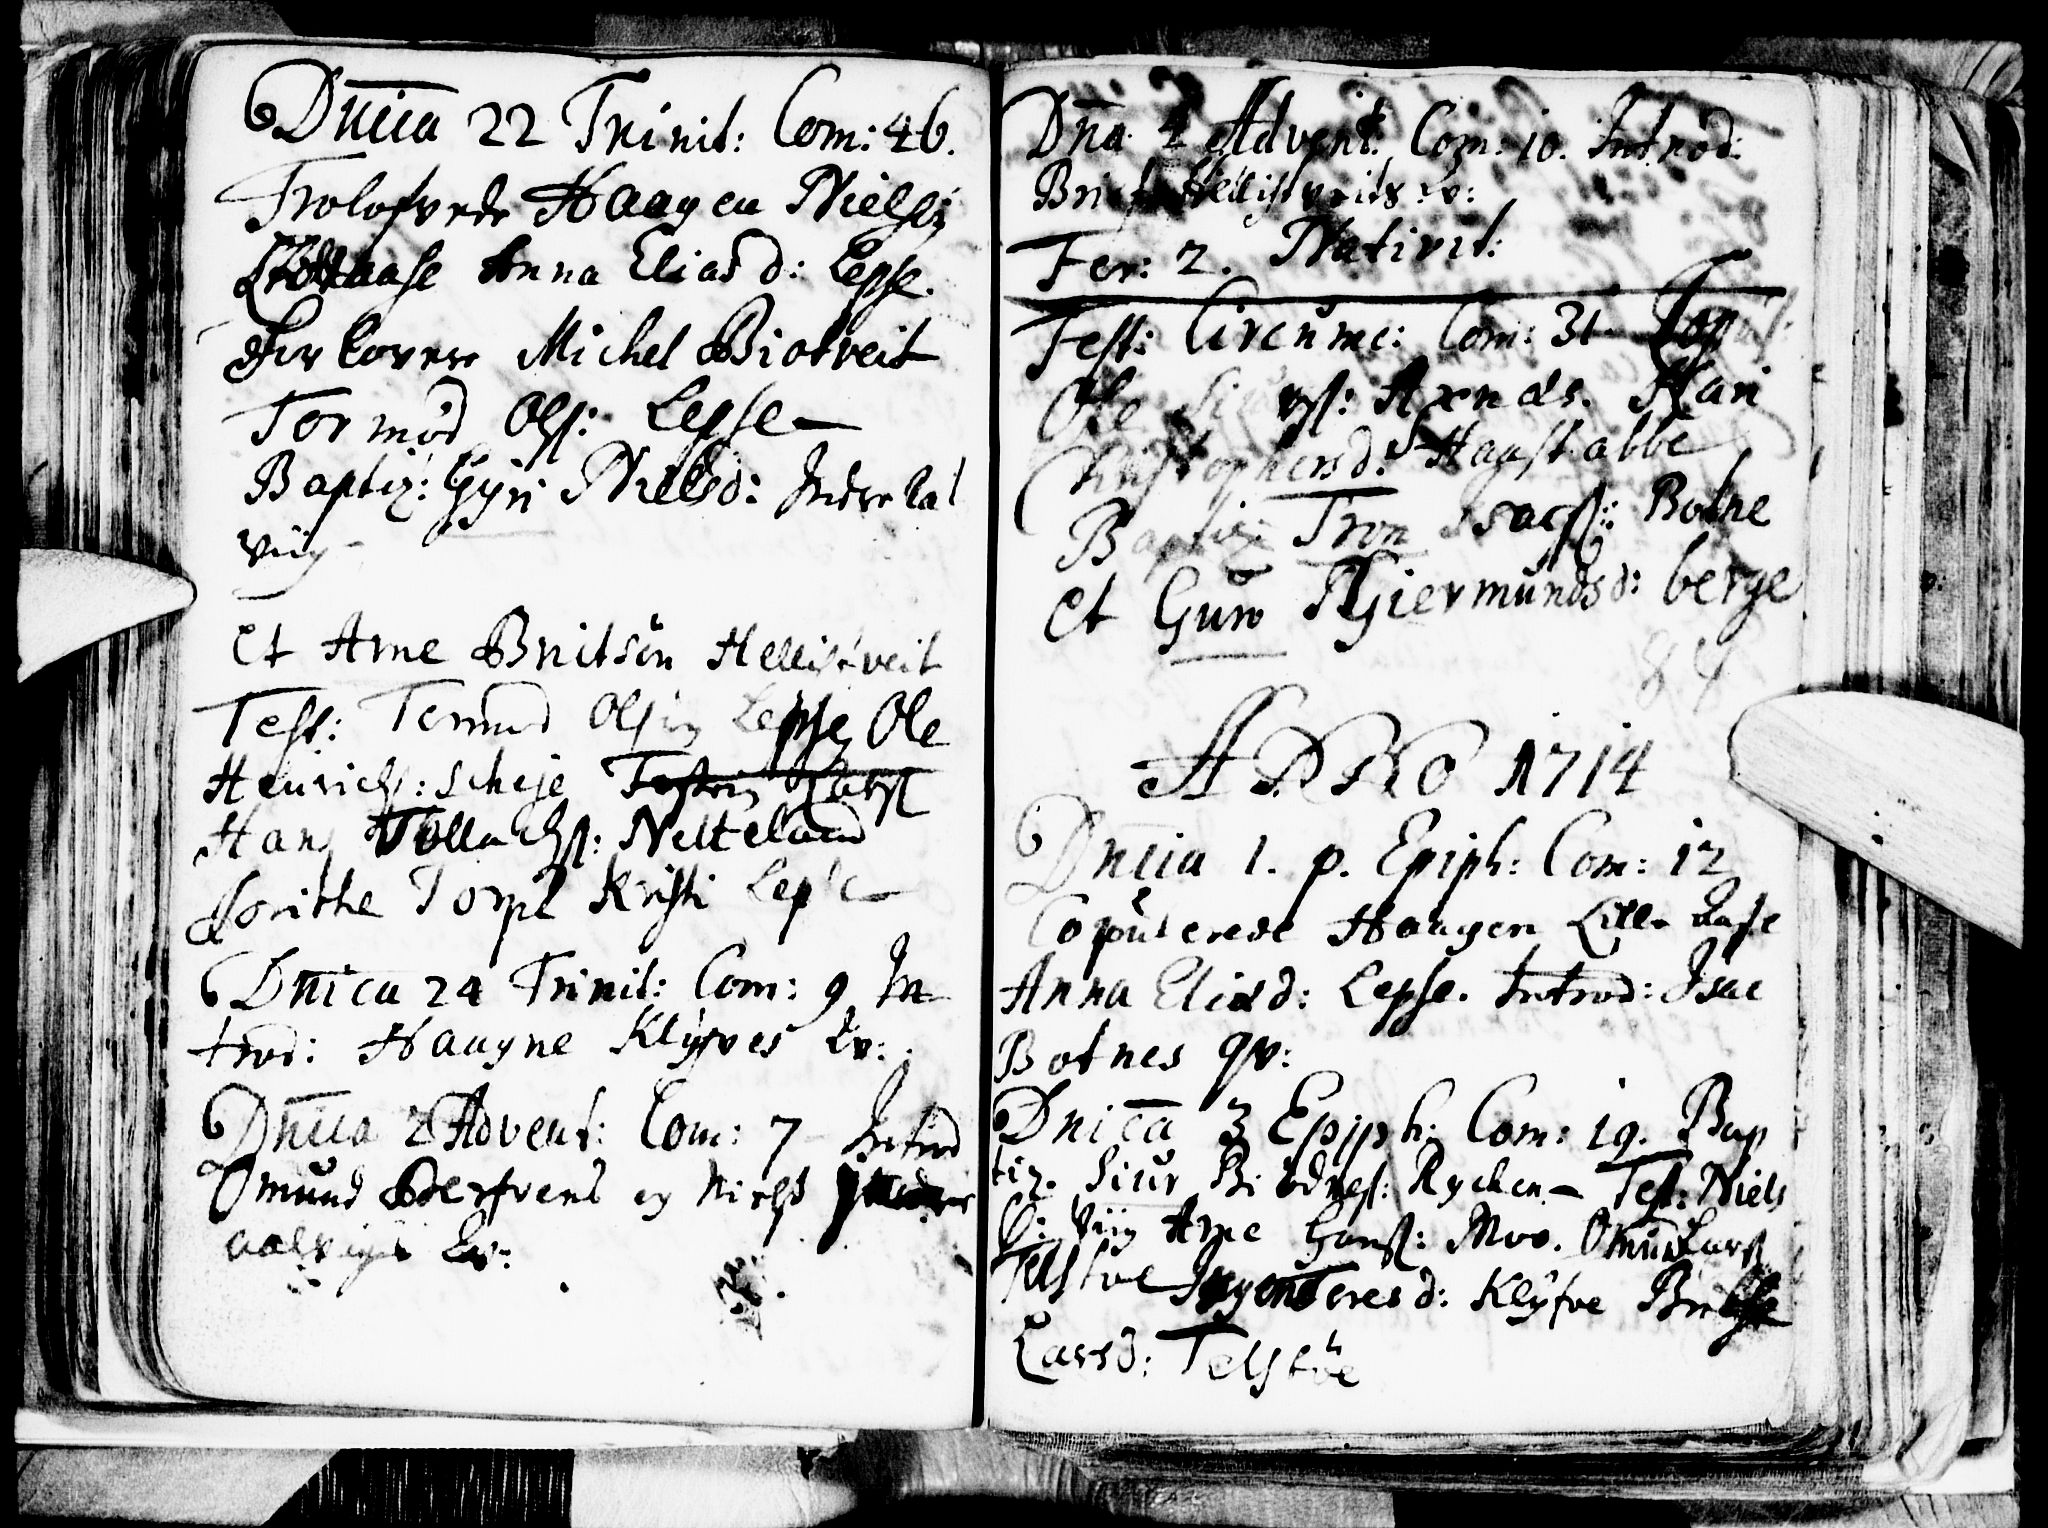 Dnica 22 Trinit: Com: 46.
Trolofvede Haagen Nielsz
Anna Eliasd: Lepse.
Forlovere Michel Biotveit
Tormod Ols: Lepse
Baptiz: Gyri Nielsd: Indre lal
viig
et Arne Britsön Hellistveit
Test: Tormod Olsøn Lepse Ole
Henrichs: Scheje
Hans Tollachs: Netteland
Dorithe Torpe Kristi Lepse
Dnica 24 Trinit: Com: 9 In
trod: Haagne Klyfves qv:
Dnica 2 Advent: Com: 7 Introd
Omund og Niels
aalviigs qv:
Dnca 4 Advent: Com: 10. Introd:
Brite Hellistveits qv:
Fer: 2. Nativit:
Fest: Circumc: Com: 31 Copul:
Ole Siurs: Axnæs. Kari
Christophersd: Hagstabbe
Baptiz: Tron Isachs: Botne
et Guro Giermundsd: berge
84
ANNO 1714
Dnica 1. p. Epiph: Com: 12
Copulerede Haagen Lille
Anna Eliasd: Lepse. Introd: Isac
Botnes qv:
Dnica 3 Epiph: Com: 19. Bap
tiz. Siur Rychen Test: Niels
viig Arne Hans: Moe. Omund Lars
Telstøe Klyfve
Larsd: Telstøe